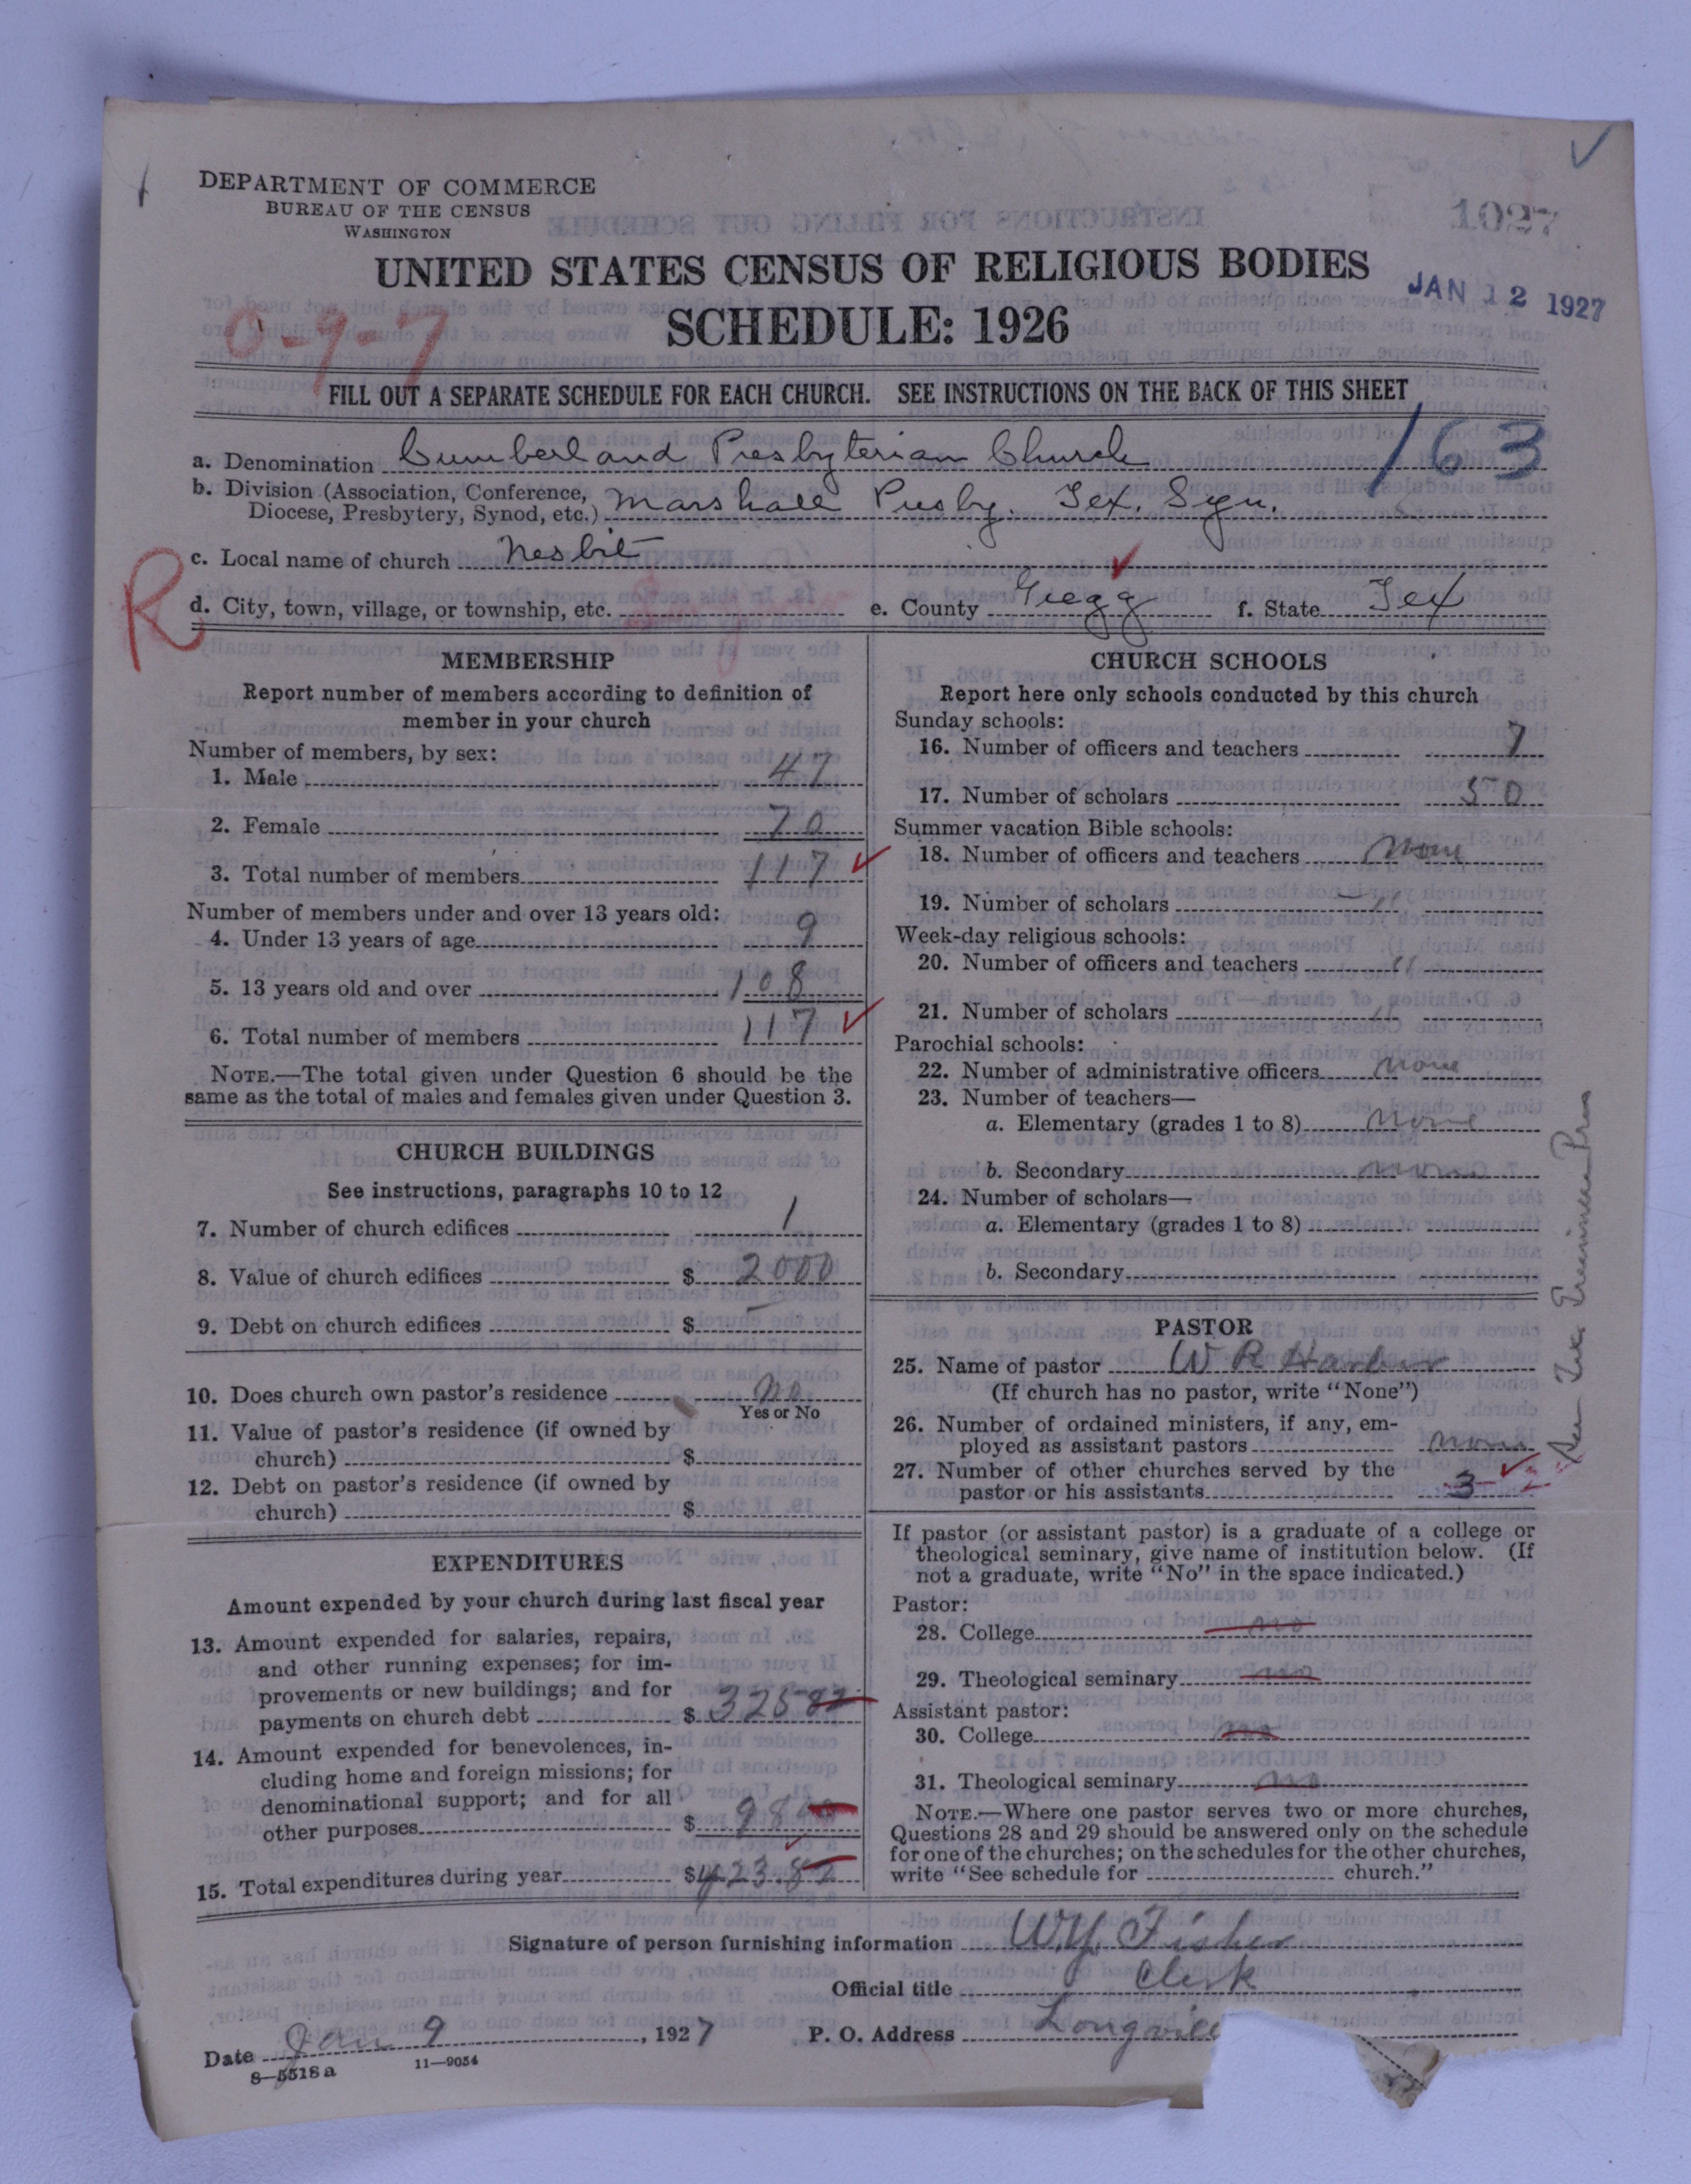 DEPARTMENT OF COMMERCE
BUREAU OF THE CENSUS
WASHINGTON
1027
UNITED STATES CENSUS OF RELIGIOUS BODIES
JAN 12 1927
SCHEDULE: 1926
0-9-7
FILL OUT A SEPARATE SCHEDULE FOR EACH CHURCH. SEE INSTRUCTIONS ON THE BACK OF THIS SHEET
163
a. Denomination Cumberland Presbyterian Church
b. Division (Association, Conference, Diocese, Presbytery, Synod, etc.) Marshall Presby. Tex. Syn.
c. Local name of church Nesbit
R
d. City, town, village, or township, etc. e. County Gregg f. State Tex
MEMBERSHIP
Report number of members according to definition of
member in your church
Number of members, by sex:
1. Male 47
2. Female 70
3. Total number of members 117
Number of members under and over 13 years old:
4. Under 13 years of age 9
5. 13 years old and over 108
6. Total number of members 117
NOTE.—The total given under Question 6 should be the
same as the total of males and females given under Question 3.
CHURCH BUILDINGS
See instructions, paragraphs 10 to 12
7. Number of church edifices 1
8. Value of church edifices $ 2000
9. Debt on church edifices $
10. Does church own pastor's residence no
Yes or No
11. Value of pastor's residence (if owned by
church) $
12. Debt on pastor's residence (if owned by
church) $
EXPENDITURES
Amount expended by your church during last fiscal year
13. Amount expended for salaries, repairs,
and other running expenses; for im-
provements or new buildings; and for
payments on church debt $ 325 82
14. Amount expended for benevolences, in-
cluding home and foreign missions; for
denominational support; and for all
other purposes $ 98
15. Total expenditures during year $423.82
CHURCH SCHOOLS
Report here only schools conducted by this church
Sunday schools:
16. Number of officers and teachers 7
17. Number of scholars 50
Summer vacation Bible schools:
18. Number of officers and teachers none
19. Number of scholars "
Week-day religious schools:
20. Number of officers and teachers "
21. Number of scholars "
Parochial schools:
22. Number of administrative officers none
23. Number of teachers—
a. Elementary (grades 1 to 8) none
b. Secondary none
24. Number of scholars—
a. Elementary (grades 1 to 8)
b. Secondary
PASTOR
25. Name of pastor W R Harber
(If church has no pastor, write "None")
26. Number of ordained ministers, if any, em-
ployed as assistant pastors none
27. Number of other churches served by the
pastor or his assistants 3
If pastor (or assistant pastor) is a graduate of a college or
theological seminary, give name of institution below. (If
not a graduate, write "No" in the space indicated.)
Pastor:
28. College no
29. Theological seminary no
Assistant pastor:
30. College no
31. Theological seminary no
NOTE.—Where one pastor serves two or more churches,
Questions 28 and 29 should be answered only on the schedule
for one of the churches; on the schedules for the other churches,
write "See schedule for church."
Signature of person furnishing information W.Y. Fisher
Official title Clerk
Date Jan 9, 1927 P. O. Address Longview
8—5518a 11—9054